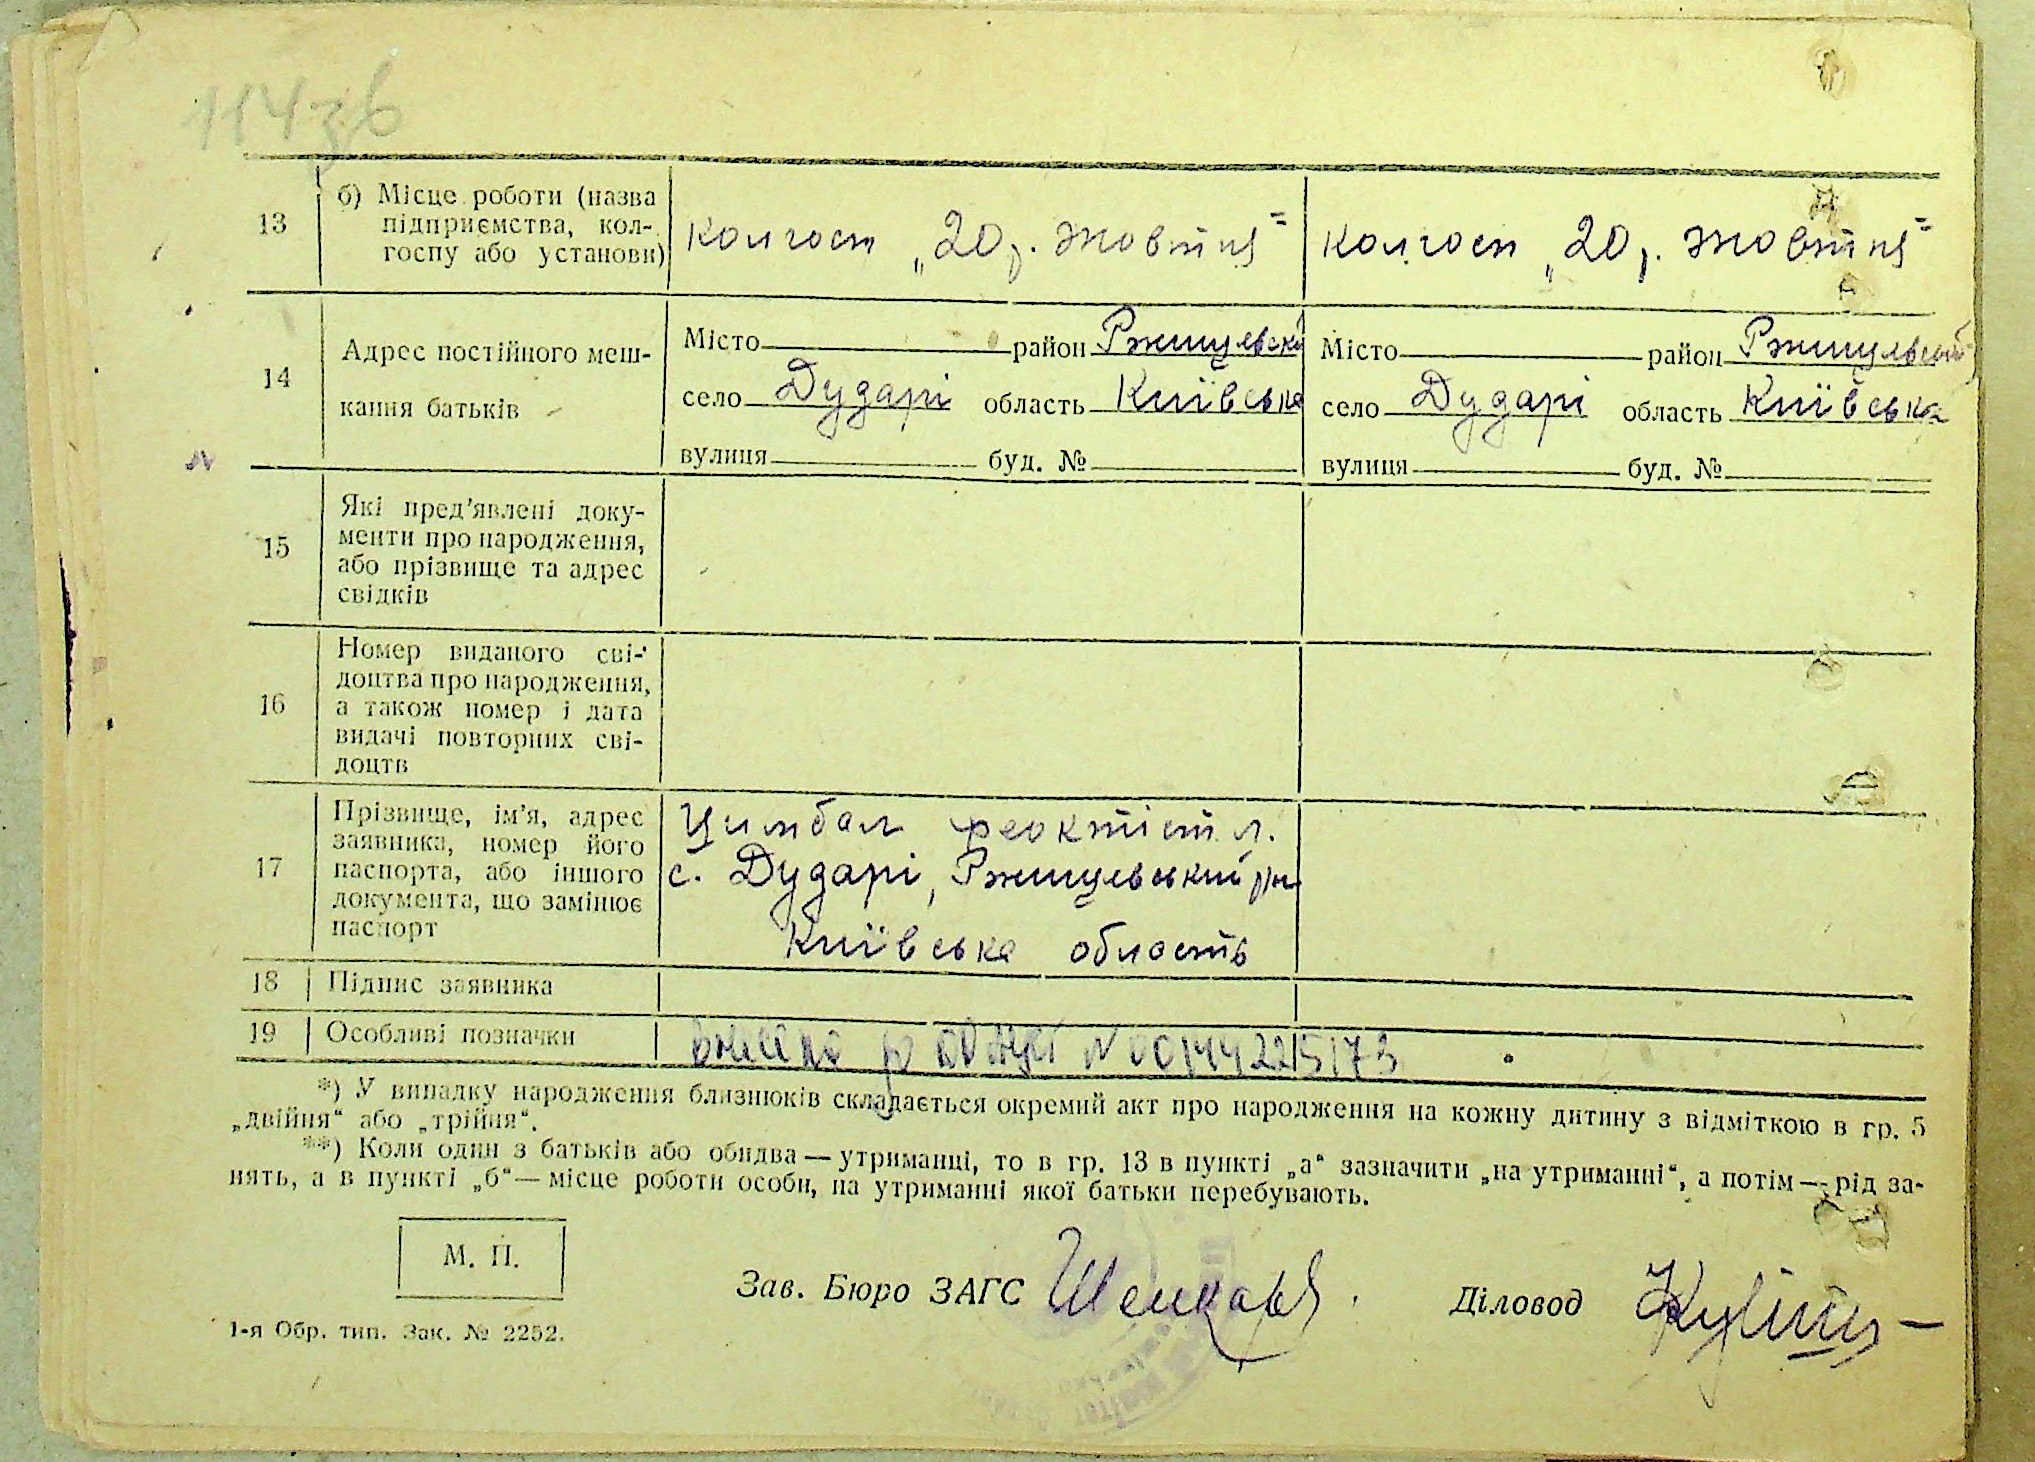 114зв
13
б) Місце роботи (назва
підприємства, кол-
госпу або установи)
колгосп „20 р. жовтня"
колгосп „20 р. жовтня"
14
Адрес постійного меш-
кання батьків
Місто район Ржищевськ
село Дударі область Київська
вулиця буд. №
Місто район Ржищевський
село Дударі область Київська
вулиця буд. №
15
Які пред'явлені доку-
менти про народження,
або прізвище та адрес
свідків
16
Номер виданого сві-
доцтва про народження,
а також номер і дата
видачі повторних сві-
доцтв
17
Прізвище, ім'я, адрес
заявника, номер його
паспорта, або іншого
документа, що замінює
паспорт
Цимбал феоктіст л.
с. Дударі, Ржищевський р/н
Київська область
18 Підпис заявника
19 Особливі позначки
внесено до № 00144225173
*) У випадку народження близнюків складається окремий акт про народження на кожну дитину з відміткою в гр. 5
„двійня“ або „трійня“.
**) Коли один з батьків або обидва — утриманці, то в гр. 13 в пункті „а“ зазначити „на утриманні“, а потім — рід за-
нять, а в пункті „б“ — місце роботи особи, на утриманні якої батьки перебувають.
М. П.
Зав. Бюро ЗАГС
Діловод
1-я Обр. тип. Зак. № 2252.